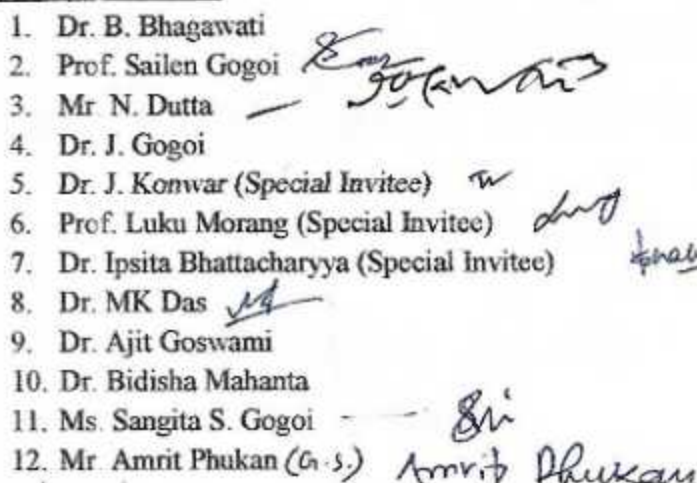 1. Dr. B. Bhagawati
2. Prof. Sailen Gogoi
3. Mr. N. Dutta
4. Dr. J. Gogoi
5. Dr. J. Konwar (Special Invitee)
6. Prof. Luku Morang (Special Invitee)
7. Dr. Ipsita Bhattacharyya (Special Invitee)
8. Dr. MK Das
9. Dr. Ajit Goswami
10. Dr. Bidisha Mahanta
11. Ms. Sangita S. Gogoi
12. Mr. Amrit Phukan (G.S.) Amrit Phukan